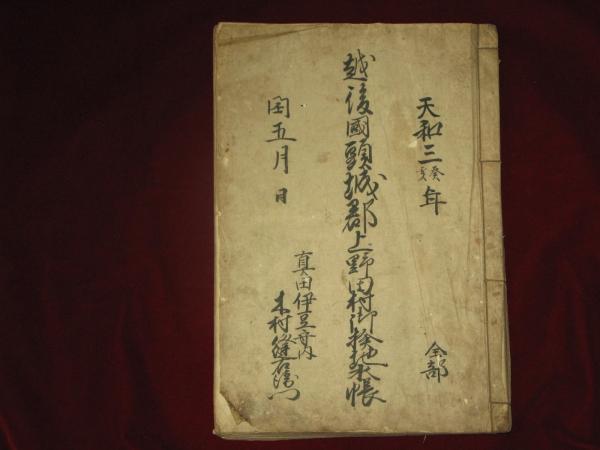 天和三癸亥年
全部
越後國頸城郡上野田村御検地水帳
閏五月 日
真田伊豆守内
木村縫右衛門